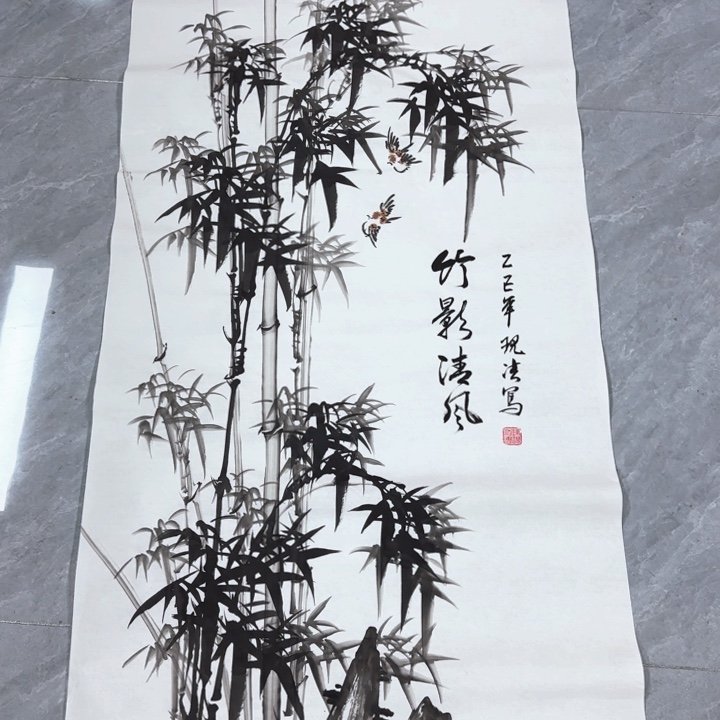 竹影清风
乙巳年 写